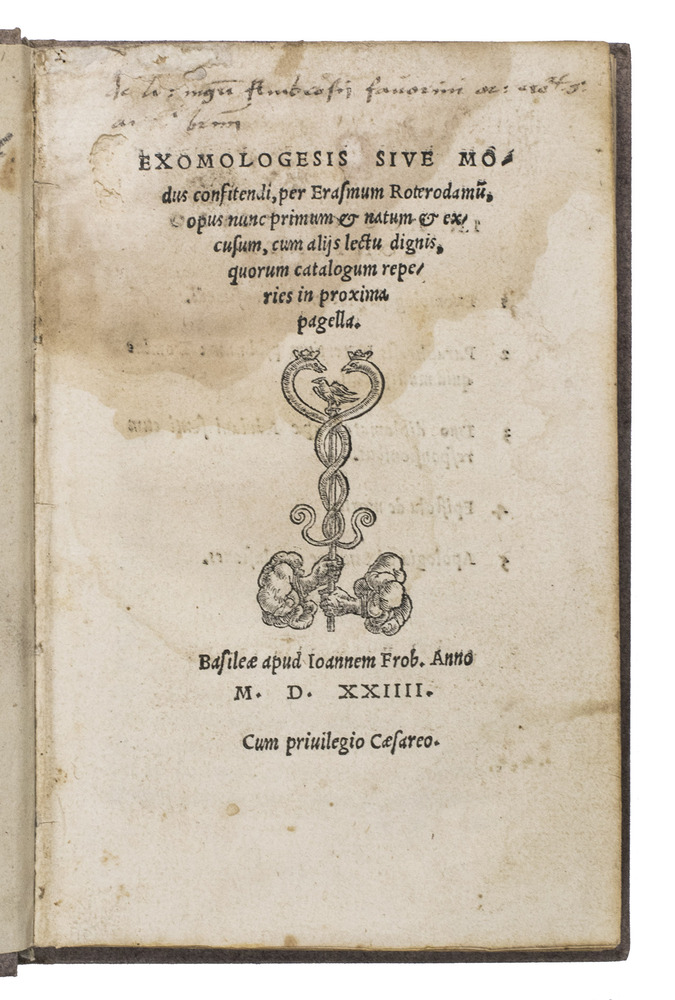 EXOMOLOGESIS SIVE MO/
dus confitendi, per Eraſmum Roterodamū,
opus nunc primum & natum & ex/
cuſum, cum alijs lectu dignis,
quorum catalogum repe/
ries in proxima
pagella.
Baſileæ apud Ioannem Frob. Anno
M. D. XXIIII.
Cum priuilegio Cæſareo.